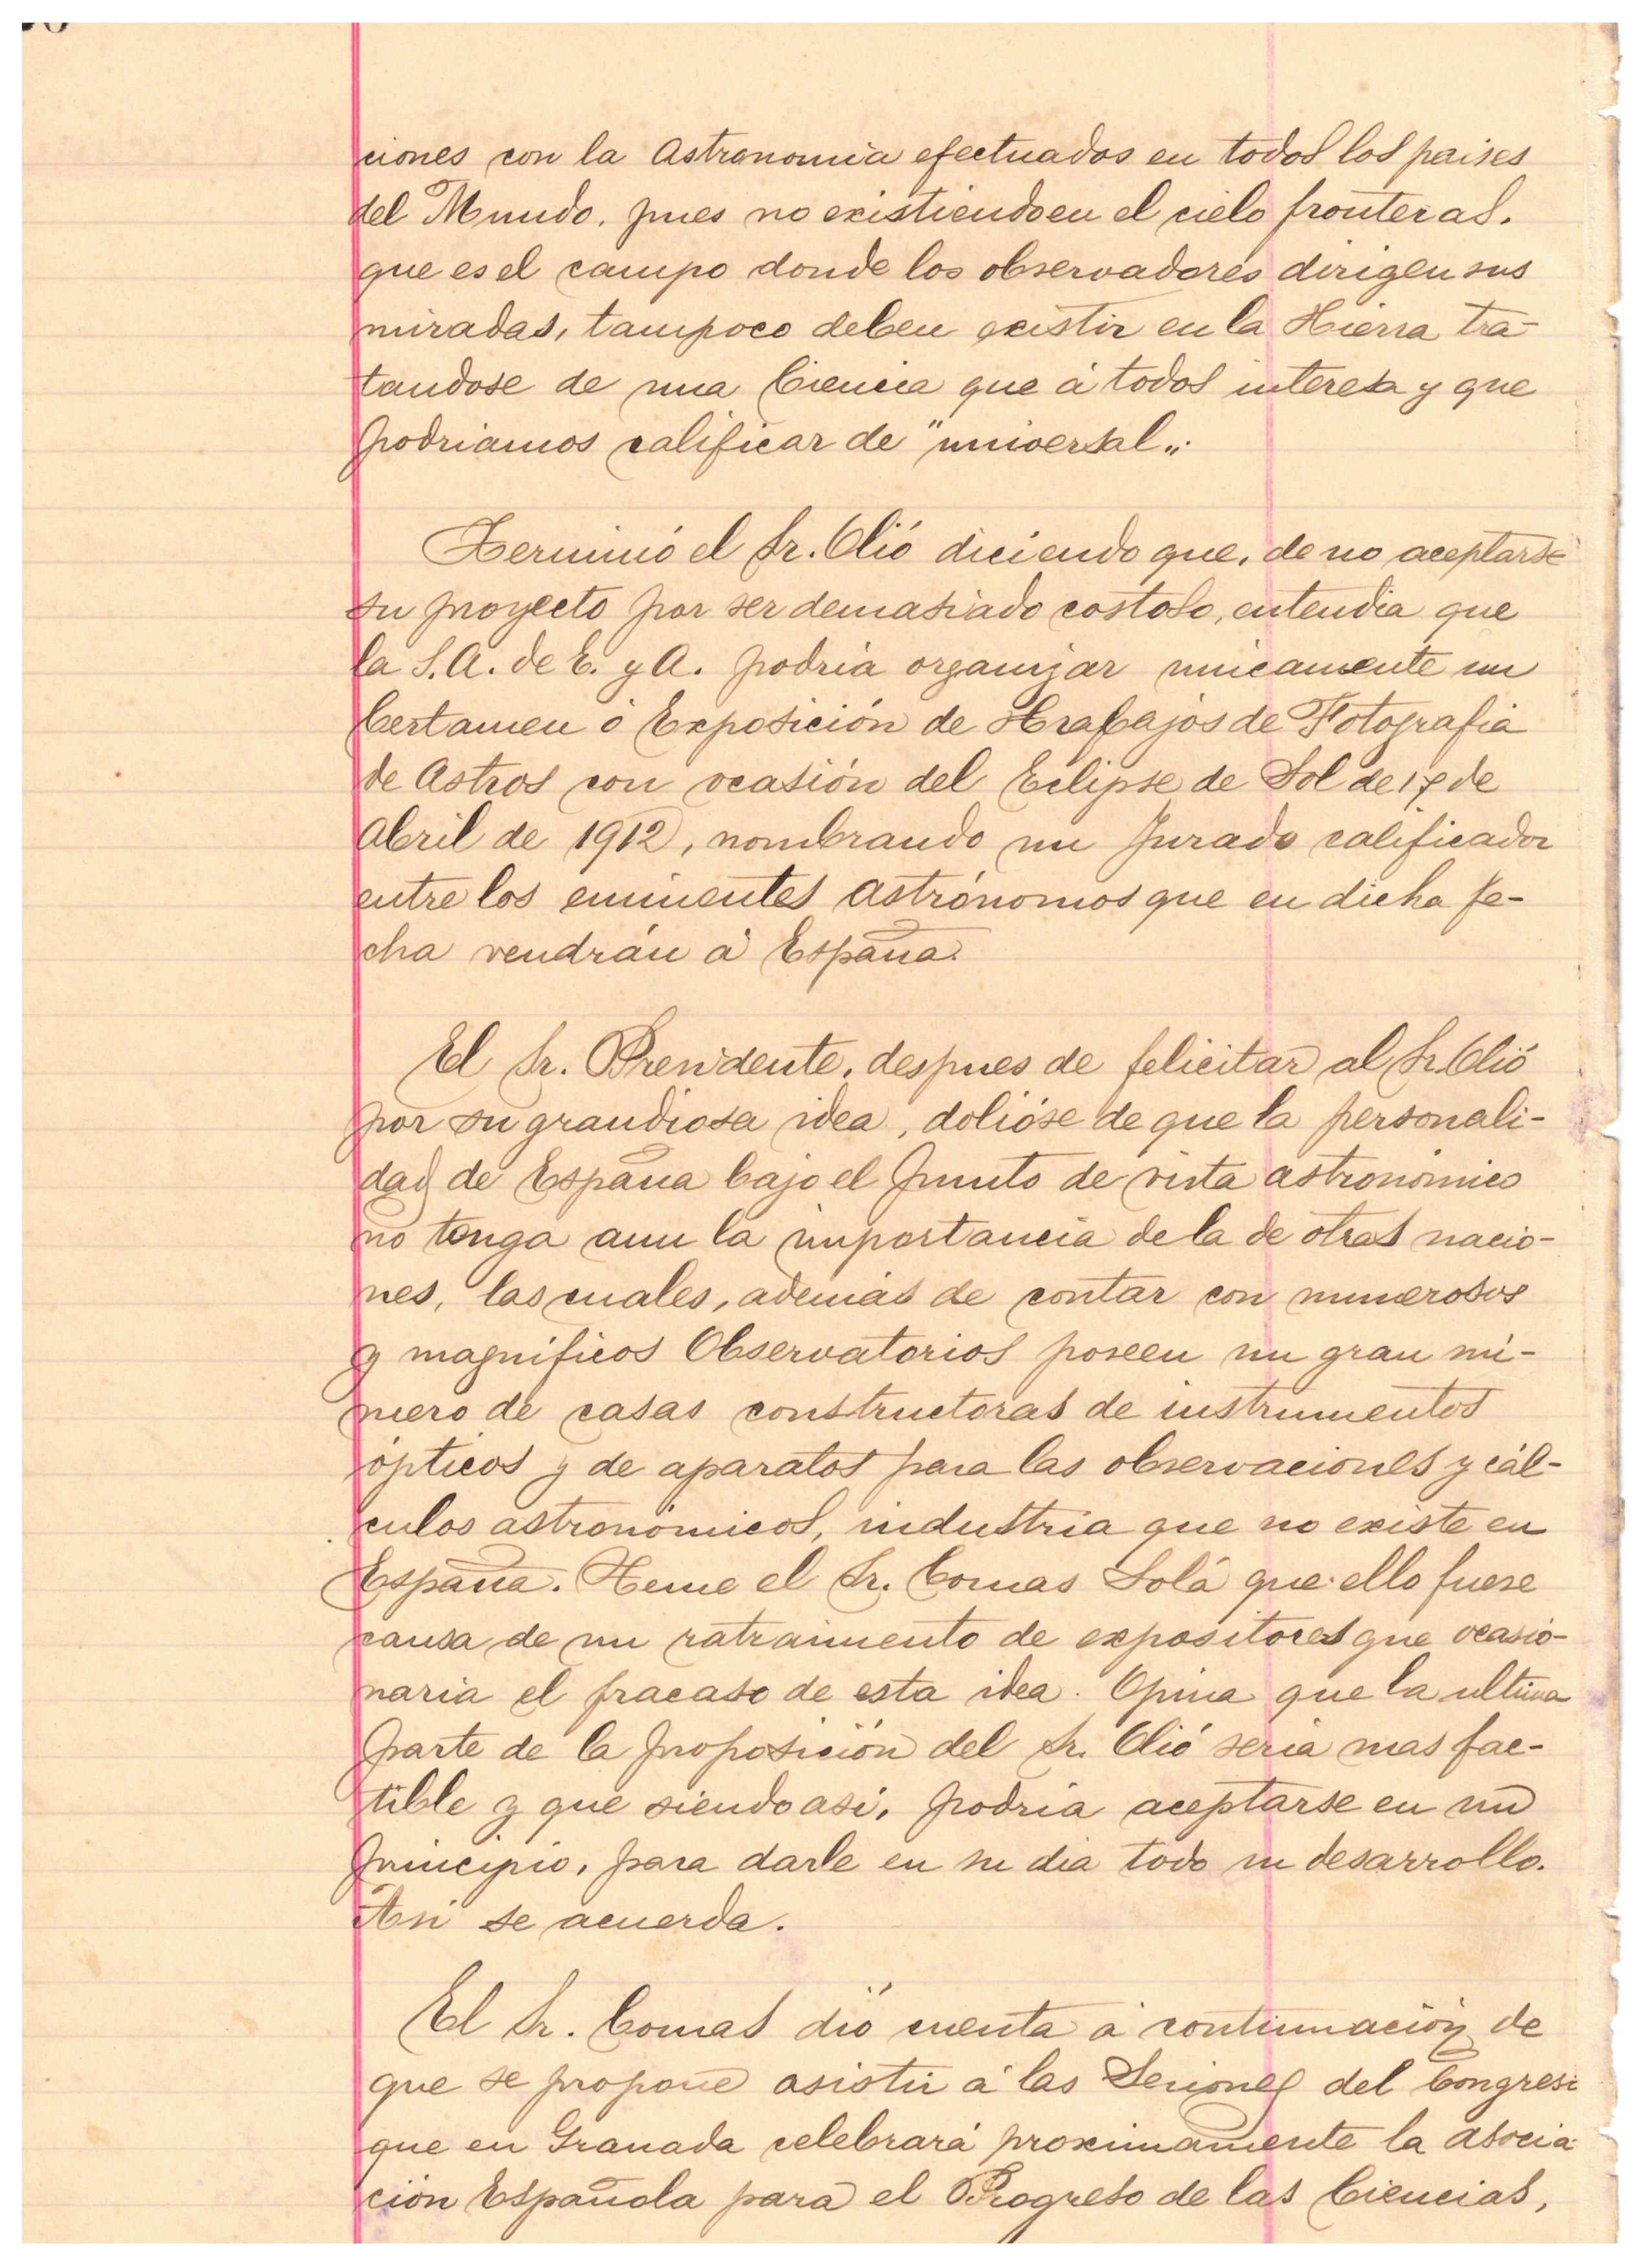 ciones con la Astronomía efectuados en todos los paises
del Mundo, pues no existiendo en el cielo fronteras,
que es el campo donde los observadores dirigen sus
miradas, tampoco deben existir en la Tierra tra-
tandose de una Ciencia que á todos interesa y que
podriamos calificar de "universal".
Terminó el Sr. Clió diciendo que, de no aceptarse
su proyecto por ser demasiado costoso, entendia que
la S. A. de E. y A. podria organizar unicamente un
Certamen ó Exposición de Trabajos de Fotografia
de Astros con ocasión del Eclipse de Sol de 17 de
Abril de 1912, nombrando un Jurado calificador
entre los eminentes astrónomos que en dicha fe-
cha vendrán á España.
El Sr. Presidente, despues de felicitar al Sr. Clió
por su grandiosa idea, dolióse de que la personali-
dad de España bajo el punto de vista astronómico
no tenga aun la importancia de la de otras nacio-
nes, las cuales, además de contar con numerosos
y magníficos Observatorios poseen un gran nú-
mero de casas constructoras de instrumentos
ópticos y de aparatos para las observaciones y cál-
culos astronómicos, industria que no existe en
España. Teme el Sr. Comas Solá que ello fuese
causa de un ratraimiento de expositores que ocasio-
naria el fracaso de esta idea. Opina que la ultima
parte de la proposición del Sr. Clió seria mas fac-
tible y que siendo asi, podria aceptarse en un
principio, para darle en su dia todo su desarrollo.
Asi se acuerda.
El Sr. Comas dió cuenta á continuación de
que se propone asistir á las Sesiones del Congreso
que en Granada celebrará proximamente la Asocia-
ción Española para el Progreso de las Ciencias,